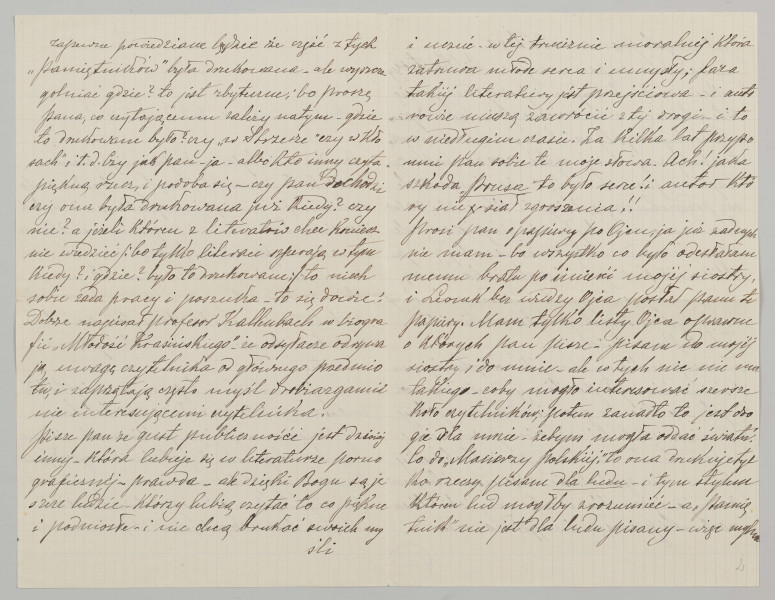 zapewne powiedziane będzie że część z tych
„Pamiętników" była drukowana – ale wyszcze
gólniać gdzie? to jest zbyteczne; bo proszę
pana, co czytającemu zależy na tym – gdzie
to drukowane było? czy „w Strzesze" czy w Kło
sach" i t. d. Czy jak pan – ja – albo kto inny czyta
piękną rzecz, i podoba się – czy pan dochodzi
czy ona była drukowana już kiedy? czy
nie? a jeżeli któren z literatów chce koniecz
nie wiedzieć (bo tylko literaci szperają w tym
kiedy? i gdzie? było to drukowane;) to niech
sobie zada pracy i poszuka – to się dowie!
Dobrze napisał profesor Kallenbach w biogra
fii „Młodość Krasińskiego", że odsyłacze odrywa
ją uwagę czytelnika od głównego przedmio
tu, i zaprzątają często myśl drobiazgami
nie interesującemi czytelnika!
Pisze pan że gust publiczności jest dzisiaj
inny – która lubuje się w literaturze porno
graficznej – prawda – ale dzięki Bogu są je
szcze ludzie – którzy lubią czytać to co piękne
i podniosłe – i nie chcą brukać swoich my
śli
i uczuć – w tej truciźnie moralnej która
zatruwa młode serca i umysły; faza
takiej literatury jest przejściowa – i auto
rowie muszą zawrócić z tej drogi – i to
w niedługim czasie. Za kilka lat przypo
mni pan sobie te moje słowa. Ach! jaka
szkoda Prusa to było serce! i autor któ
ry nie siał zgorszenia!!
Prosi pan o papiery po Ojcu; ja już żadnych
nie mam – bo wszystko co było odesłałam
memu bratu po śmierci mojej siostry,
i Leonek bez wiedzy Ojca posłał panu te
papiery. Mam tylko listy Ojca oprawne
o których pan pisze – pisane do mojej
siostry i do mnie – ale w tych nic nie ma
takiego – coby mogło interesować szersze
koło czytelników; potem zanadto to jest dro
gie dla mnie – żebym mogła oddać światu!
Co do „Macierzy polskiej" to ona drukuje tyl
ko rzeczy pisane dla ludu – i tym stylem
którenby lud mógłby zrozumieć – a „Pamię
tnik" nie jest dla ludu pisany – więc
2